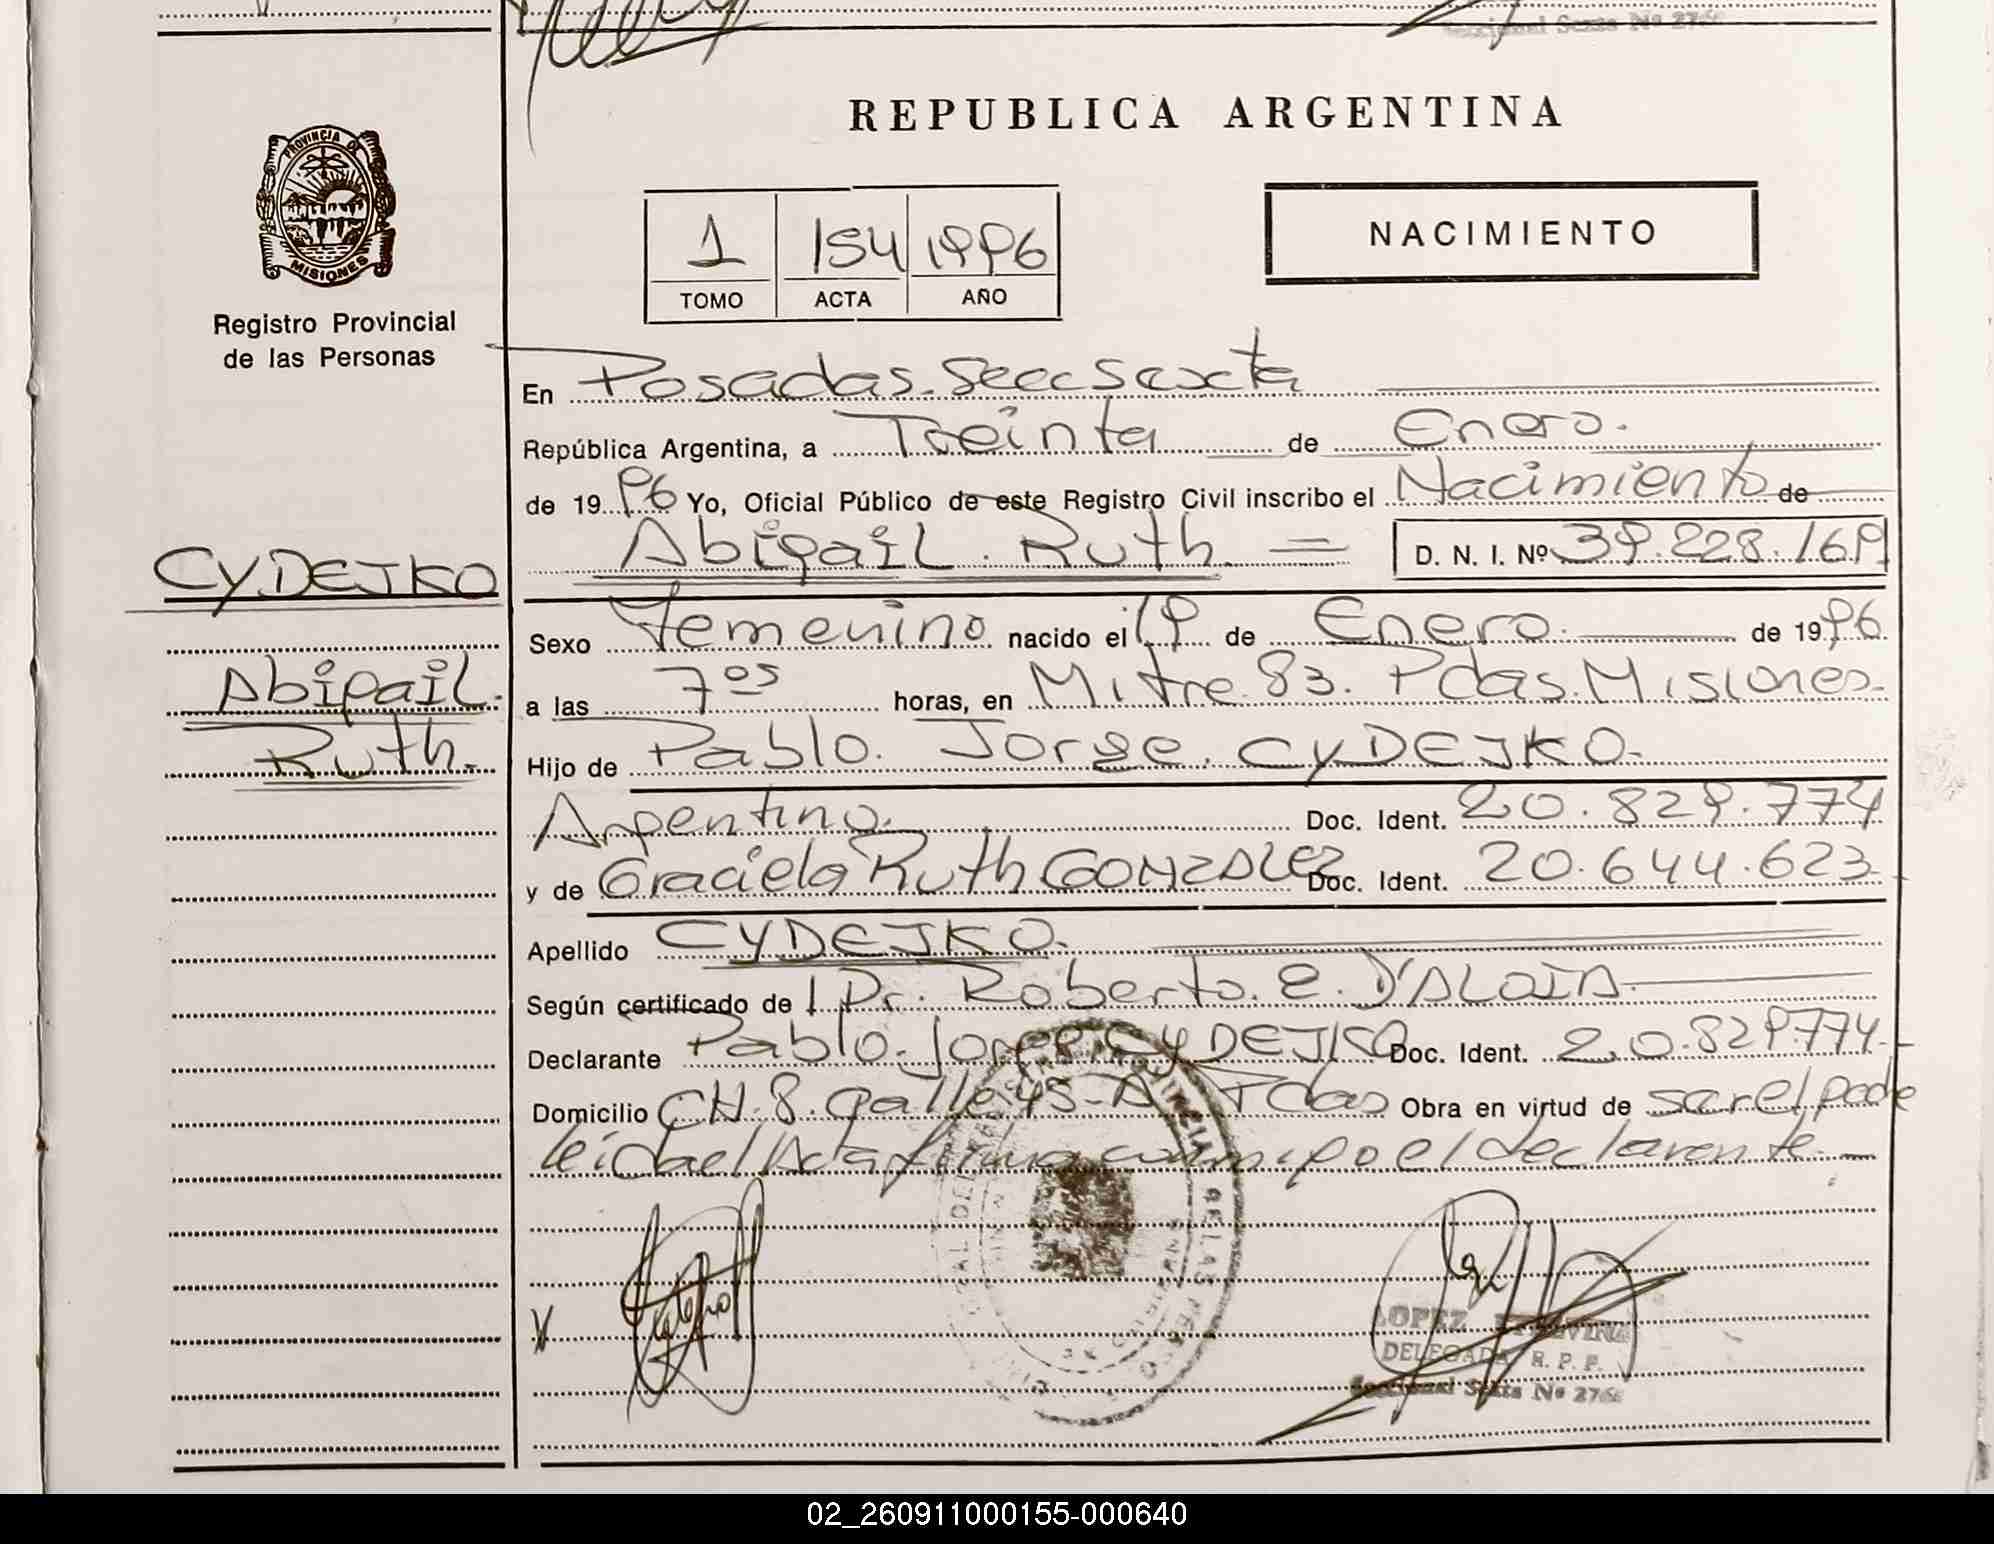 Seccional Sexta Nº 276
REPUBLICA ARGENTINA
PROVINCIA DE
MISIONES
Registro Provincial
de las Personas
1 154 1996
TOMO ACTA AÑO
NACIMIENTO
En Posadas. Secc Sexta
República Argentina, a Treinta de Enero.
de 1996 Yo, Oficial Público de este Registro Civil inscribo el Nacimiento de
Abigail. Ruth. D. N. I. Nº 39.228.169
CYDEJKO
Abigail.
Ruth.
Sexo Femenino nacido el 19 de Enero. de 1996.
a las 7os horas, en Mitre. 83. Pdas. Misiones.
Hijo de Pablo. Jorge. CYDEJKO.
Argentino. Doc. Ident. 20.829.774
y de Graciela Ruth GONZALEZ Doc. Ident. 20.644.623
Apellido CYDEJKO.
Según certificado de Dr. Roberto. E. D'ALOIA
Declarante Pablo. Jorge. CYDEJKO Doc. Ident. 20.829774
Domicilio CH. 8. Calle 45- Pdas Obra en virtud de ser el padre
leida el Acta firma conmigo el declarante.
LOPEZ ETELVINA
DELEGADA R. P. P.
Seccional Sexta Nº 276
02_260911000155-000640